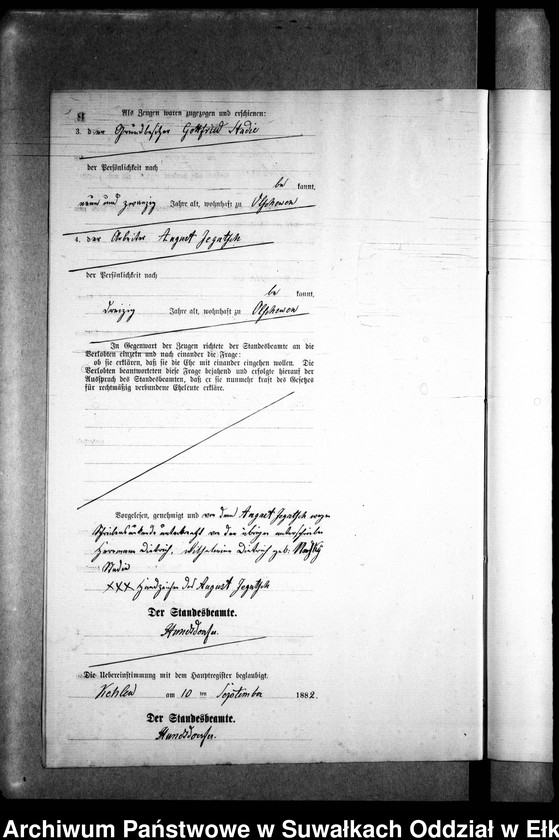 Als Zeugen waren zugezogen und erschienen:
3. der Grundbesitzer Gottfried Stadie
der Persönlichkeit nach
be kannt,
neun und zwanzig Jahre alt, wohnhaft zu Olschewen
4. der Arbeiter August Jegutsch
der Persönlichkeit nach
be kannt,
dreizig Jahre alt, wohnhaft zu Olschewen
In Gegenwart der Zeugen richtete der Standesbeamte an die
Verlobten einzeln und nach einander die Frage:
ob sie erklären, daß sie die Ehe mit einander eingehen wollen. Die
Verlobten beantworteten diese Frage bejahend und erfolgte hierauf der
Ausspruch des Standesbeamten, daß er sie nunmehr kraft des Gesetzes
für rechtmäßig verbundene Eheleute erkläre.
Vorgelesen, genehmigt und von dem August Jegutsch wegen
Schreibensunkunde unterkreuzt von den übrigen unterschrieben
Herrmann Dietrich, Wilhelmine Dietrich geb:
Stadie
XXX Handzeichen des August Jegutsch
Der Standesbeamte.
Hundsdorfer.
Die Uebereinstimmung mit dem Hauptregister beglaubigt.
Kehlen am 10 ten September 1882.
Der Standesbeamte.
Hundsdorfer.
Archiwum Państwowe w Suwałkach Oddział w Ełk